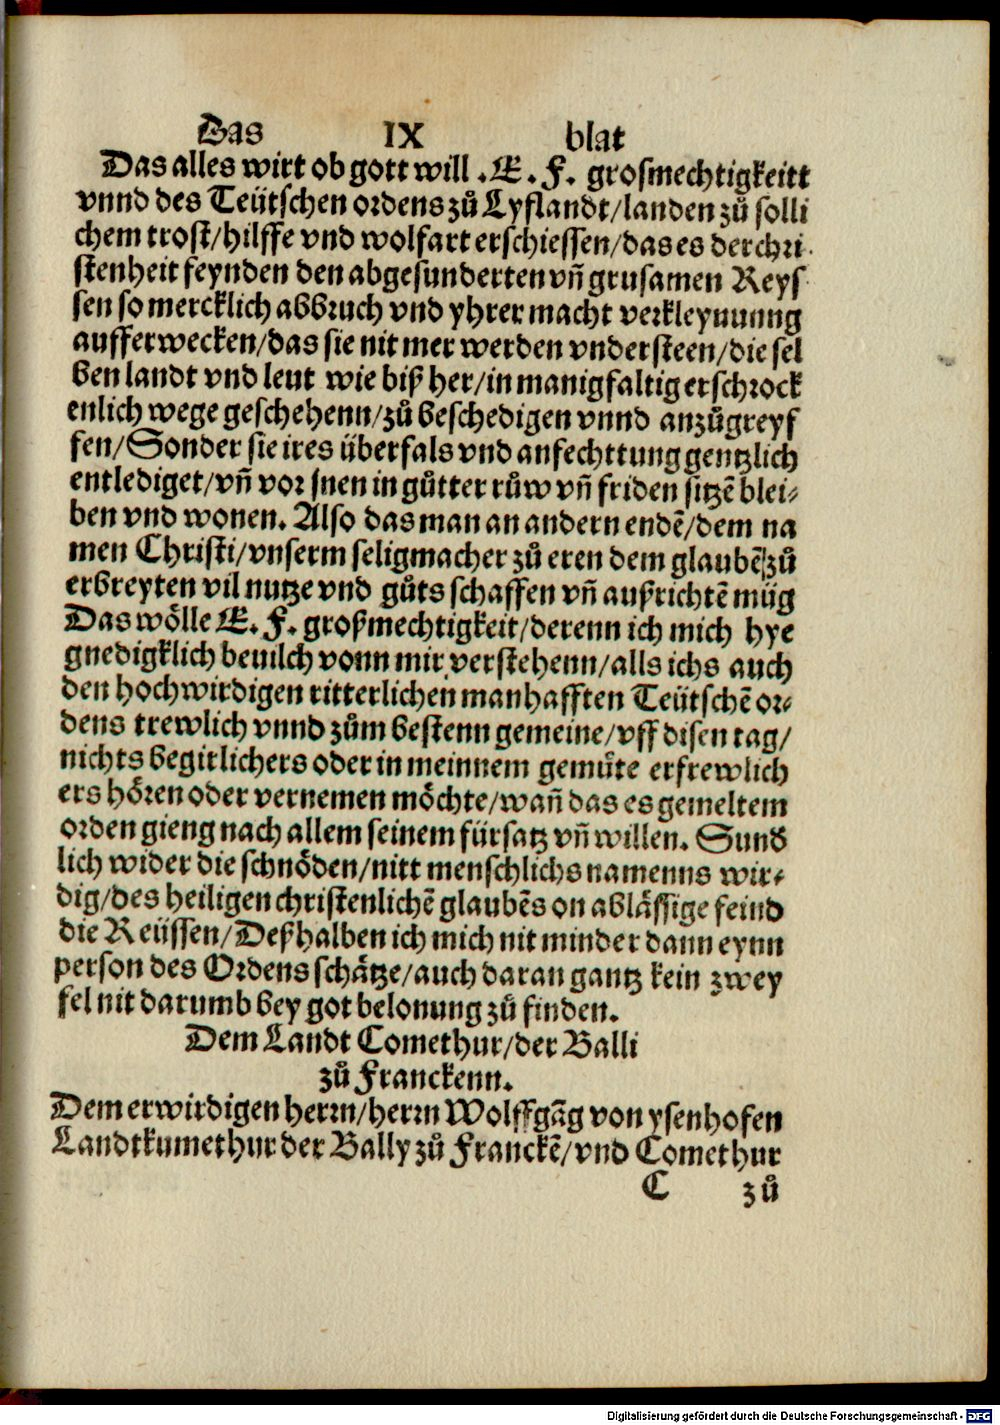 Das IX blat
Das alles wirt ob gott will .E. F. grosmechtigkeitt
vnnd des Teütschen ordens zů Lyflandt/landen zů solli
chem trost/hilffe vnd wolfart erschiessen/das es der chri
stenheit feynden den abgesunderten vñ grusamen Reys
sen so mercklich abbruch vnd yhrer macht verkleynunng
aufferwecken/das sie nit mer werden vndersteen/die sel
ben landt vnd leut wie biß her/in manigfaltig erschrock
enlich wege geschehenn/zů beschedigen vnnd anzůgreyf
fen/Sonder sie ires überfals vnd anfechttung gentzlich
entlediget/vñ vor jnen in gůtter růw vñ friden sitzē blei-
ben vnd wonen. Also das man an andern endē/dem na
men Christi/vnserm seligmacher zů eren dem glaubē/zů
erbreyten vil nutze vnd gůts schaffen vñ außrichtē müg
Das wölle E. F. großmechtigkeit/derenn ich mich hye
gnedigklich beuilch vonn mir verstehenn/alls ichs auch
den hochwirdigen ritterlichen manhafften Teütschē or-
dens trewlich vnnd zům bestenn gemeine/vff disen tag/
nichts begirlichers oder in meinnem gemůte erfrewlich
ers hören oder vernemen möchte/wañ das es gemeltem
orden gieng nach allem seinem fürsatz vñ willen. Sund
lich wider die schnöden/nitt menschlichs namenns wir-
dig/des heiligen christenlichē glaubēs on ablässige feind
die Reüssen/Deßhalben ich mich nit minder dann eynn
person des Ordens schätze/auch daran gantz kein zwey
fel nit darumb bey got belonung zů finden.
Dem Landt Comethur/der Balli
zů Franckenn.
Dem erwirdigen herrn/herrn Wolffgāg von ysenhofen
Landtkumethur der Bally zů Franckē/vnd Comethur
C zů
Digitalisierung gefördert durch die Deutsche Forschungsgemeinschaft - DFG